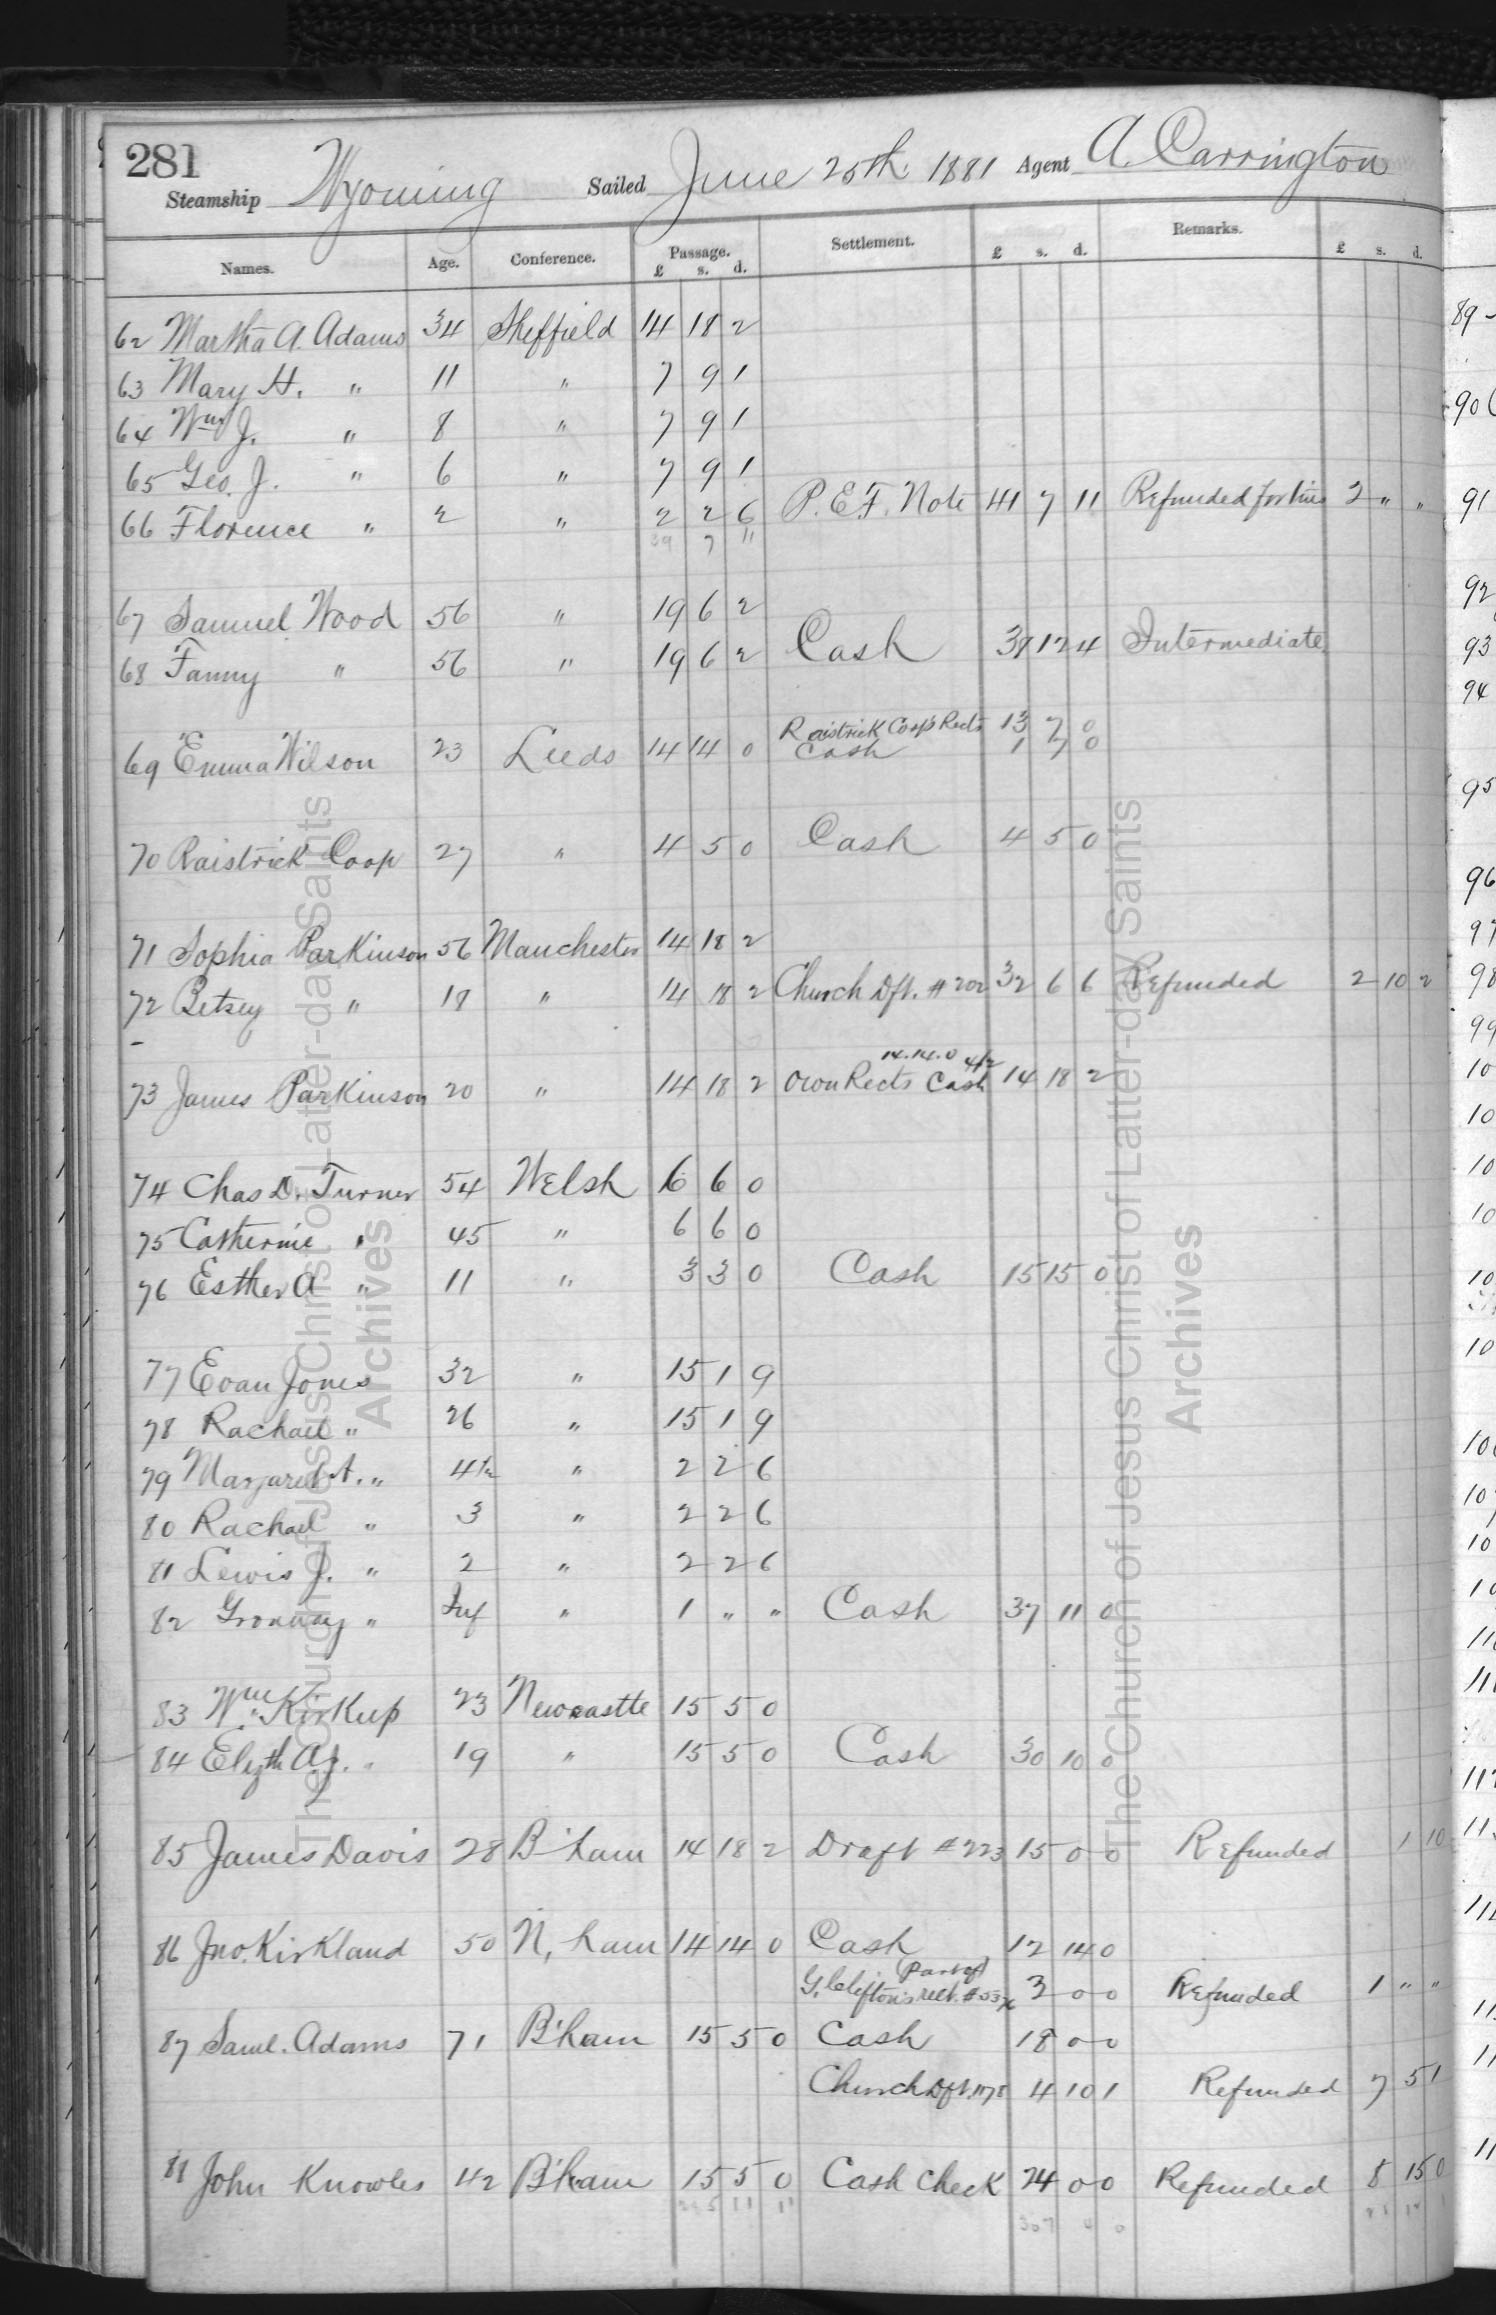 281
Steamship Wyoming Sailed June 25th. 1881 Agent A. Carrington
Names. Age. Conference. Passage. £ s. d. Settlement. £ s. d. Remarks. £ s. d.
62 Martha A. Adams 34 Sheffield 14 18 2
63 Mary H. " 11 " 7 9 1
64 Wm J. " 8 " 7 9 1
65 Geo. J. " 6 " 7 9 1
66 Florence " 2 " 2 2 6 P.E.F. Note 41 7 11 Refunded for this 2 " "
39 7 11
67 Samuel Wood 56 " 19 6 2
68 Fanny " 56 " 19 6 2 Cash 38 12 4 Intermediate
69 Emma Wilson 23 Leeds 14 14 0 Raistrick Coop's Rects 13 7 0
Cash 1 7 0
70 Raistrick Coop 27 " 4 5 0 Cash 4 5 0
71 Sophia Parkinson 56 Manchester 14 18 2
72 Betsey " 18 " 14 18 2 Church Dft. # 202 32 6 6 Refunded 2 10 2
14.14.0 4/2
73 James Parkinson 20 " 14 18 2 Own Rects Cash 14 18 2
74 Chas D. Turner 54 Welsh 6 6 0
75 Catherine " 45 " 6 6 0
76 Esther A " 11 " 3 3 0 Cash 15 15 0
77 Evan Jones 32 " 15 1 9
78 Rachael " 26 " 15 1 9
79 Margaret A. " 4½ " 2 2 6
80 Rachael " 3 " 2 2 6
81 Lewis J. " 2 " 2 2 6
82 Gronway " Inf " 1 " " Cash 37 11 0
83 Wm. Kirkup 23 Newcastle 15 5 0
84 Elizth A J. " 19 " 15 5 0 Cash 30 10 0
85 James Davis 28 B'ham 14 18 2 Draft # 223 15 0 0 Refunded 1 10
86 Jno. Kirkland 50 N, ham 14 14 0 Cash 12 14 0
(Part of)
G. Clifton's rect. 3 0 0 Refunded 1 " "
87 Saml. Adams 71 B'ham 15 5 0 Cash 18 0 0
Church Dft. 1178 4 10 1 Refunded 7 5 1
88 John Knowles 42 B'ham 15 5 0 Cash Check 24 0 0 Refunded 8 15 0
307 0 0
89
90
91
92
93
94
95
96
97
98
99
The Church of Jesus Christ of Latter-day Saints
Archives
The Church of Jesus Christ of Latter-day Saints
Archives